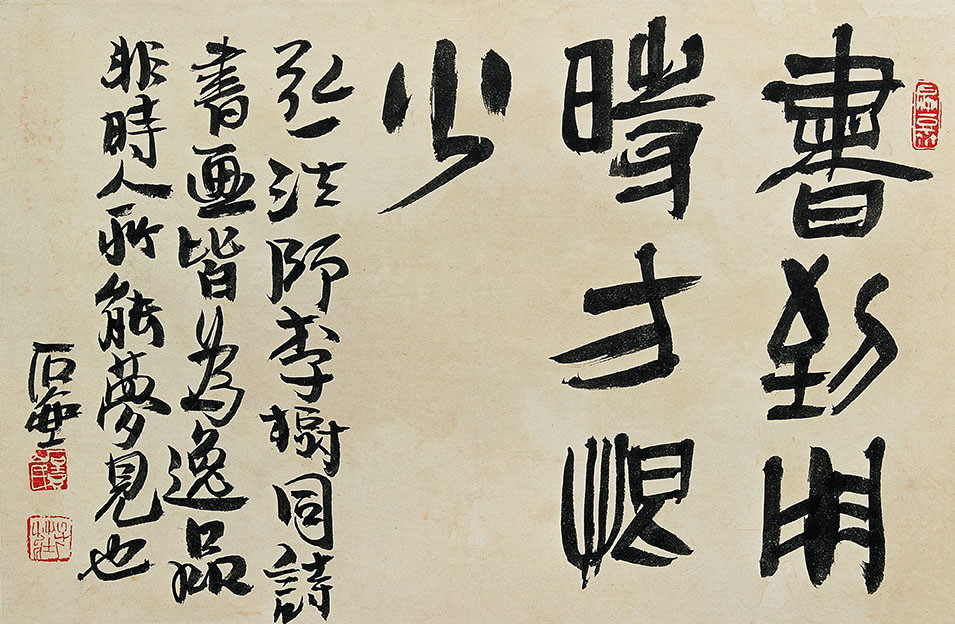 書到用
時方恨
少
弘一法師李樹同詩
書画皆為逸品
非時人所能夢見也
石壺